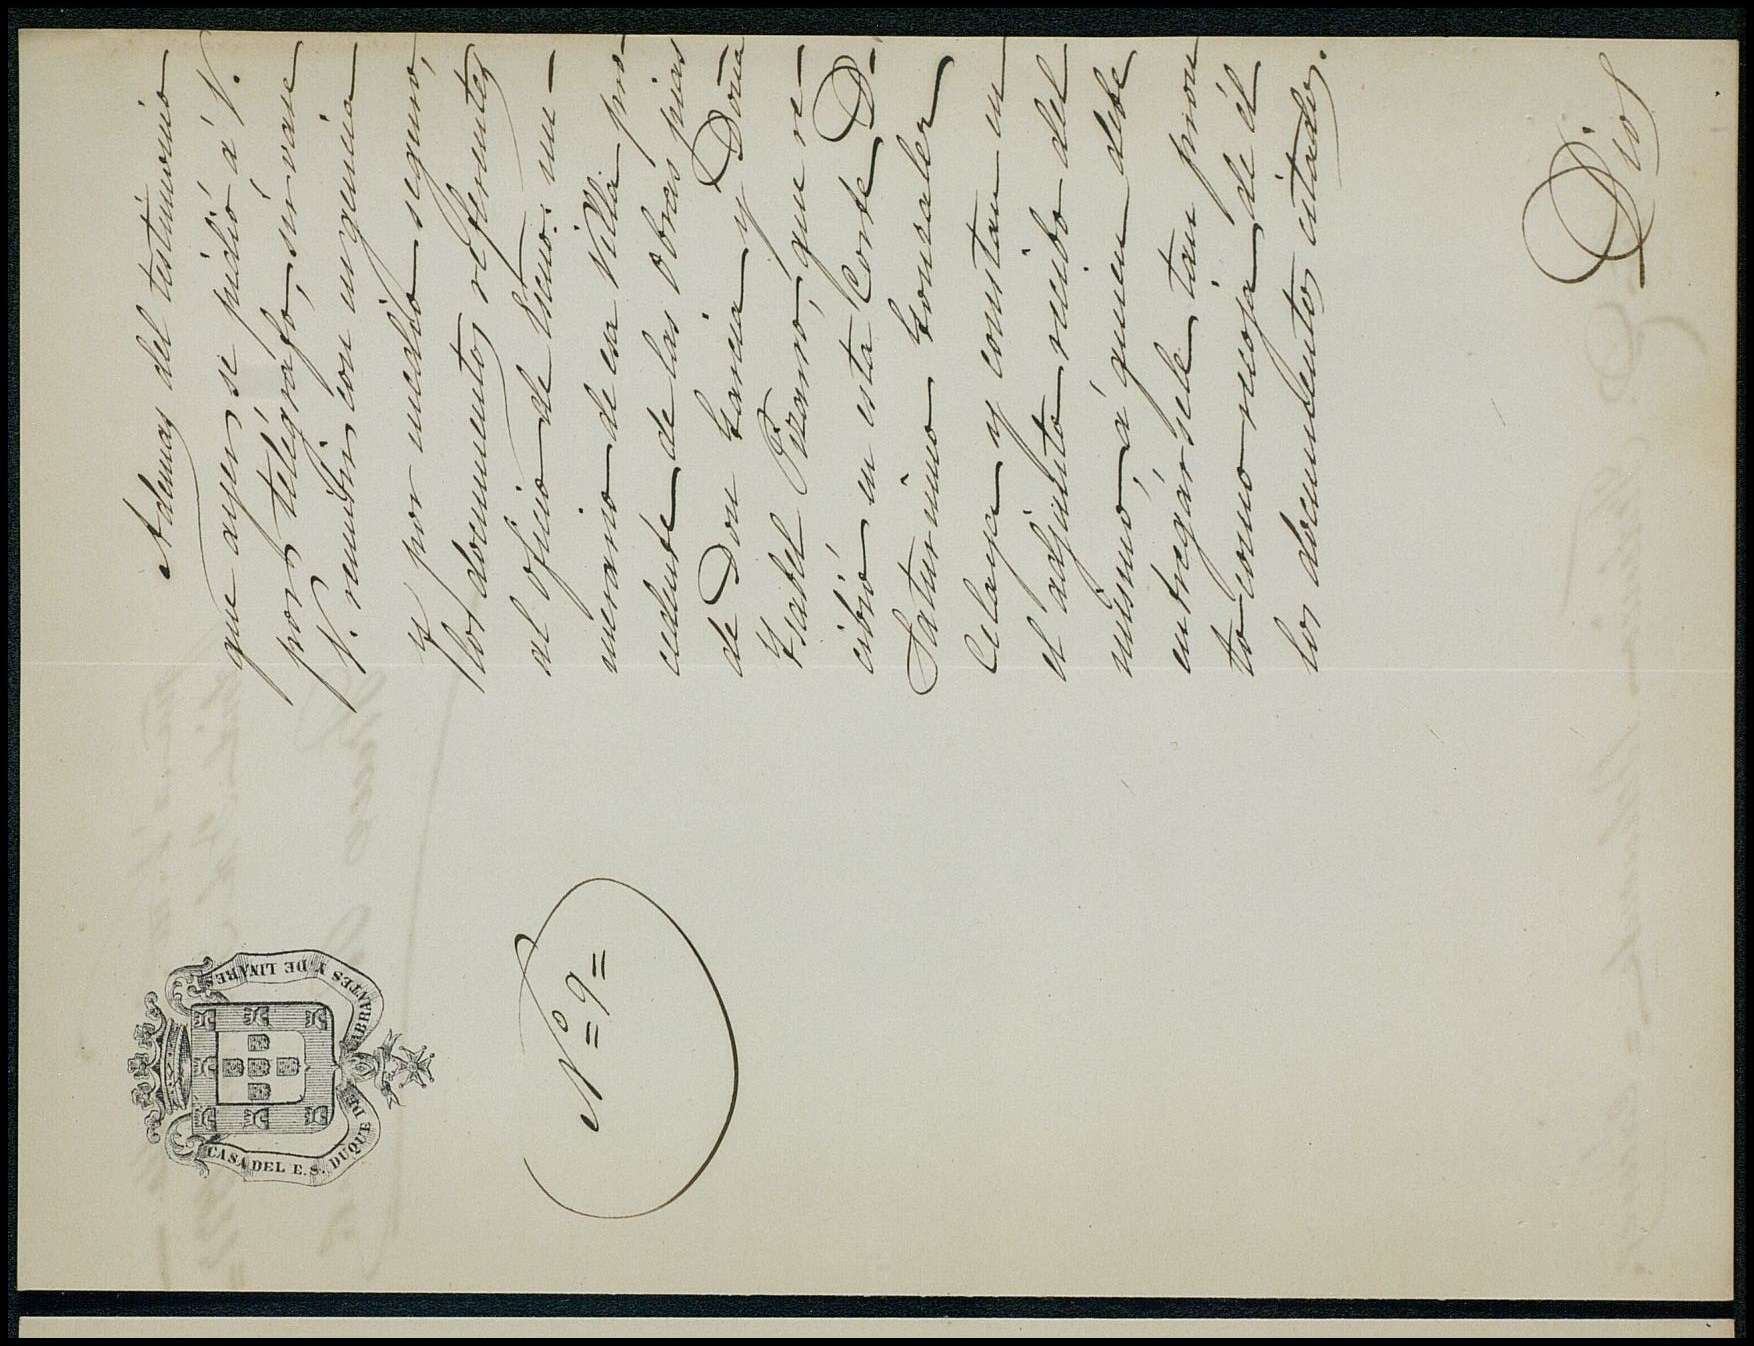 CASA DEL E.S. DUQUE DE ABRANTES Y DE LINARES
Nº=9=
Ademas del testimonio
que ayer se pidió á V.
por telégrafo, sírvase
V. remitir con urgencia
y por medio seguro,
los documentos referentes
al oficio de Escno. nu-
merario de esa Villa pro-
cedente de las obras pias
de Don Garcia y Doña
Isabel Pizarro, que re-
cibió en esta Corte D.
Saturnino Gonzalez
Celaya y constan en
el adjunto recibo del
mismo, á quien debe
entregársele tan pron
to como recoja de él
los documentos citados.
Dios